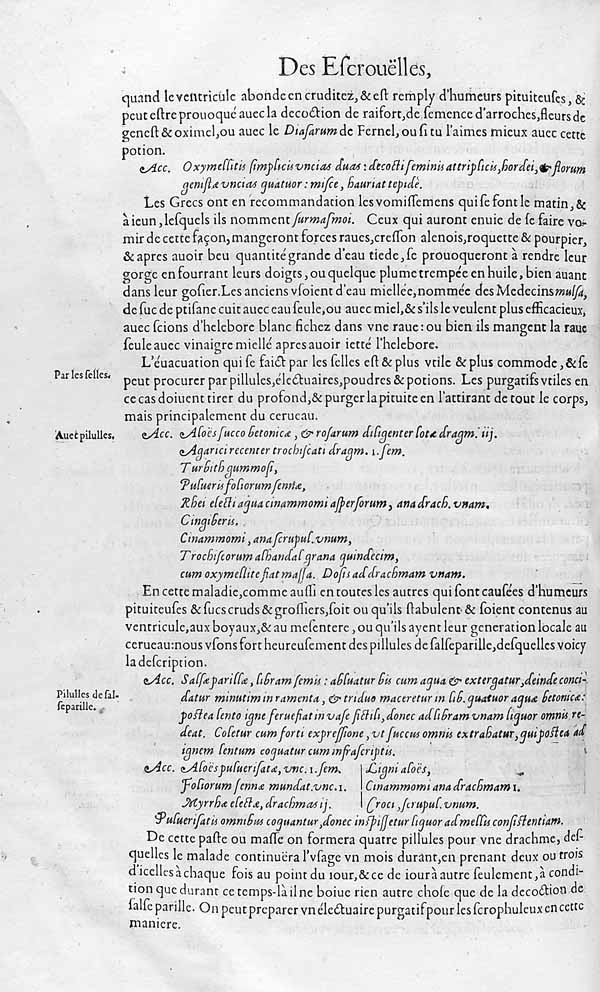 Des Eſcrouëlles,
quand le ventricule abonde en cruditez, & eſt remply d'humeurs pituiteuſes, &
peut eſtre prouoqué auec la decoction de raifort, de ſemence d'arroches, fleurs de
geneſt & oximel, ou auec le Diaſarum de Fernel, ou ſi tu l'aimes mieux auec cette
potion.
Acc. Oxymellitis ſimplicis vncias duas: decocti ſeminis attriplicis, hordei, & florum
geniſtæ vncias quatuor: miſce, hauriat tepidè.
Les Grecs ont en recommandation les vomiſſemens qui ſe font le matin, &
à ieun, leſquels ils nomment ſurmaſmoi. Ceux qui auront enuie de ſe faire vo-
mir de cette façon, mangeront forces raues, creſſon alenois, roquette & pourpier,
& apres auoir beu quantité grande d'eau tiede, ſe prouoqueront à rendre leur
gorge en fourrant leurs doigts, ou quelque plume trempée en huile, bien auant
dans leur goſier. Les anciens vſoient d'eau miellée, nommée des Medecins mulſa,
de ſuc de ptiſane cuit auec eau ſeule, ou auec miel, & s'ils le veulent plus efficacieux,
auec ſcions d'helebore blanc fichez dans vne raue: ou bien ils mangent la raue
ſeule auec vinaigre miellé apres auoir ietté l'helebore.
L'éuacuation qui ſe faict par les ſelles eſt & plus vtile & plus commode, & ſe
Par les ſelles.
peut procurer par pillules, électuaires, poudres & potions. Les purgatifs vtiles en
ce cas doiuent tirer du profond, & purger la pituite en l'attirant de tout le corps,
mais principalement du cerueau.
Auec pilulles.
Acc. Aloës ſucco betonicæ, & roſarum diligenter lotæ dragm. iij.
Agarici recenter trochiſcati dragm. 1. ſem.
Turbith gummoſi,
Pulueris foliorum ſennæ,
Rhei electi aqua cinammomi aſperſorum, ana drach. vnam.
Cingiberis.
Cinammomi, ana ſcrupul. vnum,
Trochiſcorum alhandal grana quindecim,
cum oxymellite fiat maſſa. Doſis ad drachmam vnam.
En cette maladie, comme auſſi en toutes les autres qui ſont cauſées d'humeurs
pituiteuſes & ſucs cruds & groſſiers, ſoit ou qu'ils ſtabulent & ſoient contenus au
ventricule, aux boyaux, & au meſentere, ou qu'ils ayent leur generation locale au
cerueau: nous vſons fort heureuſement des pillules de ſalſeparille, deſquelles voicy
la deſcription.
Pilulles de ſal-
ſeparille.
Acc. Salſæ pariſſæ, libram ſemis: abluatur bis cum aqua & extergatur, deinde conci-
datur minutim in ramenta, & triduo maceretur in lib. quatuor aquæ betonicæ:
poſtea lento igne ferueſiat in vaſe fictili, donec ad libram vnam liquor omnis re-
deat. Coletur cum forti expreſſione, vt ſuccus omnis extrahatur, qui poſtea ad
ignem lentum coquatur cum infraſcriptis.
Acc. Aloës pulueriſatæ, vnc. 1. ſem. Ligni aloës,
Foliorum ſennæ mundat. vnc. 1. Cinammomi ana drachmam 1.
Myrrhæ electæ, drachmas ij. Croci, ſcrupul. vnum.
Pulueriſatis omnibus coquantur, donec inſpiſſetur liquor ad mellis conſiſtentiam.
De cette paſte ou maſſe on formera quatre pillules pour vne drachme, deſ-
quelles le malade continuëra l'vſage vn mois durant, en prenant deux ou trois
d'icelles à chaque fois au point du iour, & ce de iour à autre ſeulement, à condi-
tion que durant ce temps-là il ne boiue rien autre choſe que de la decoction de
ſalſeparille. On peut preparer vn électuaire purgatif pour les ſcrophuleux en cette
maniere.